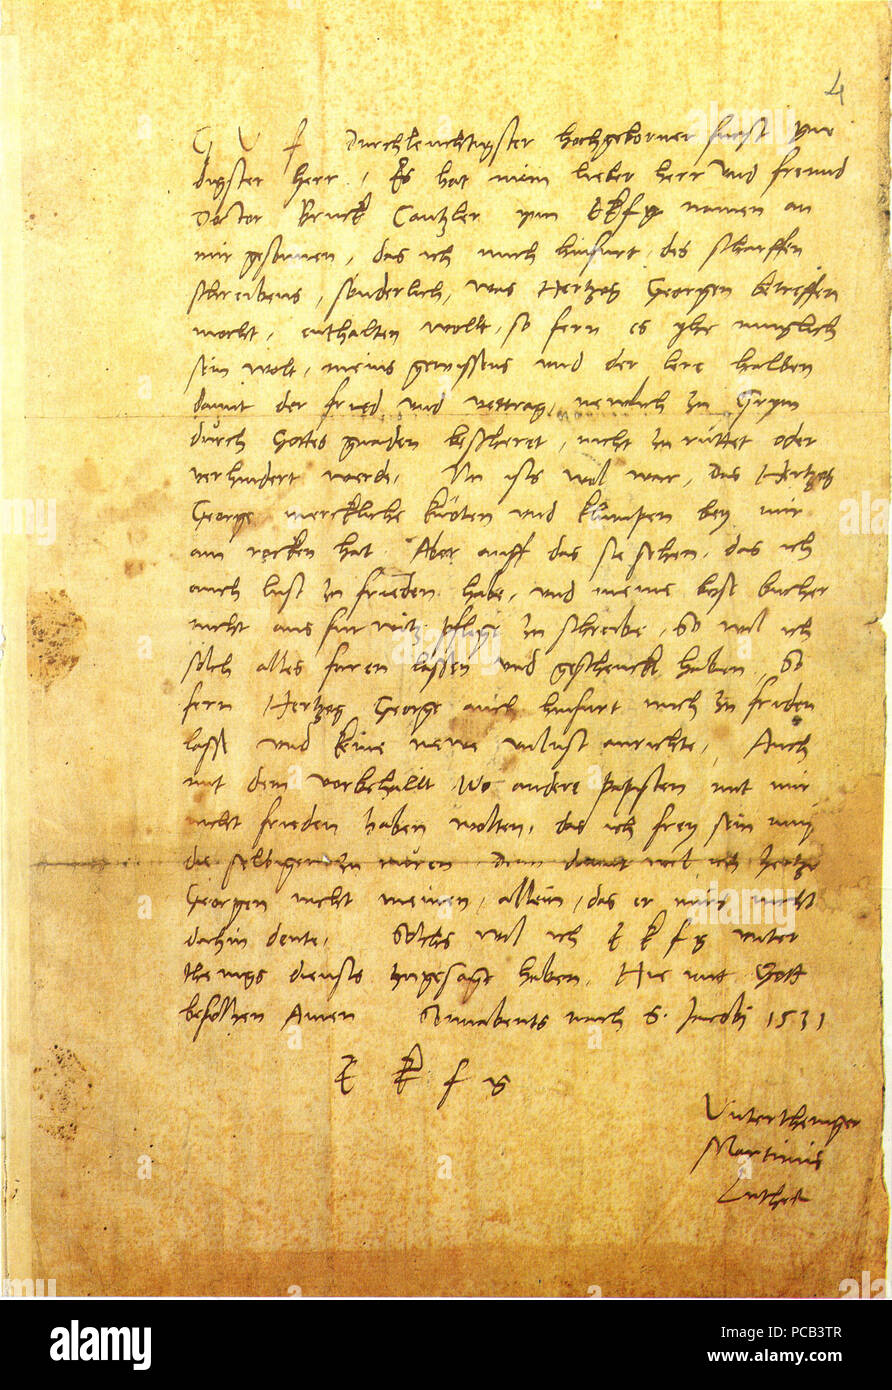 4
G V f Durchleuchtigster hochgeborner furst gne
digster herr, Es hat mein lieber herr vnd freund
Doctor Bruck Cantzler ynn EKfg namen an
mir gesonnen, das ich mich hinfurt, des scharffen
schreibens, sonderlich, was Hertzog Georgen betreffen
mocht, enthalten wollt, so fern es yhe muglich
sein wolt, meins gewissens vnd der lere halben
damit der fried vnd vertrag, newlich zu Grym
durch Gottes gnaden bescheret, nicht zu ruttet oder
verhindert werde, Nu ists wol war, das Hertzog
George merckliche knoten vnd klumpen bey mir
am rocken hat Aber auff das sie sehen, das ich
auch lust zu frieden habe, vnd meine bose bucher
nicht aus furwitz pflege zu schreibe, So wil ich
solch alles faren lassen vnd geschenckt haben, So
fern Hertzog George auch hinfurt mich zu friden
lasst vnd keine newe vnlust anrichte, Auch
mit dem vorbehallt Wo andere Papisten mit mir
nicht frieden haben wolten, das ich frey sein mug
die selbigen zu ruren Denn damit wil ich hertzog
Georgen nicht meinen, allein, das er mirs nicht
dahin deute, Solchs wil ich E K f g vnter
thenigs diensts zugesagt haben, Hie mit Gott
befolhen Amen Sonnabents nach S. Jacobi 1531
E K f g
Vnterthenger
Martinus
Luther
alamy
Image ID: PCB3TR
www.alamy.com